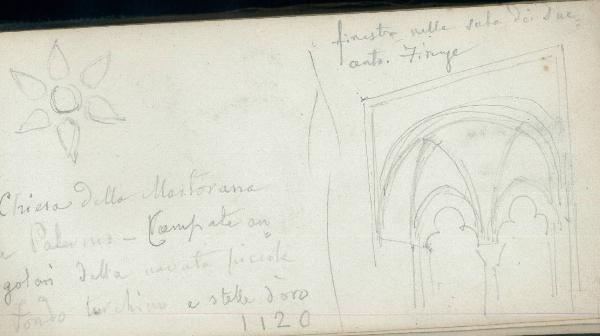 Chiesa della Martorana
a Palermo – Campate an=
golari della navata piccola
fondo turchino e stelle d'oro
1120
finestra nella sala dei due=
cento. Firenze